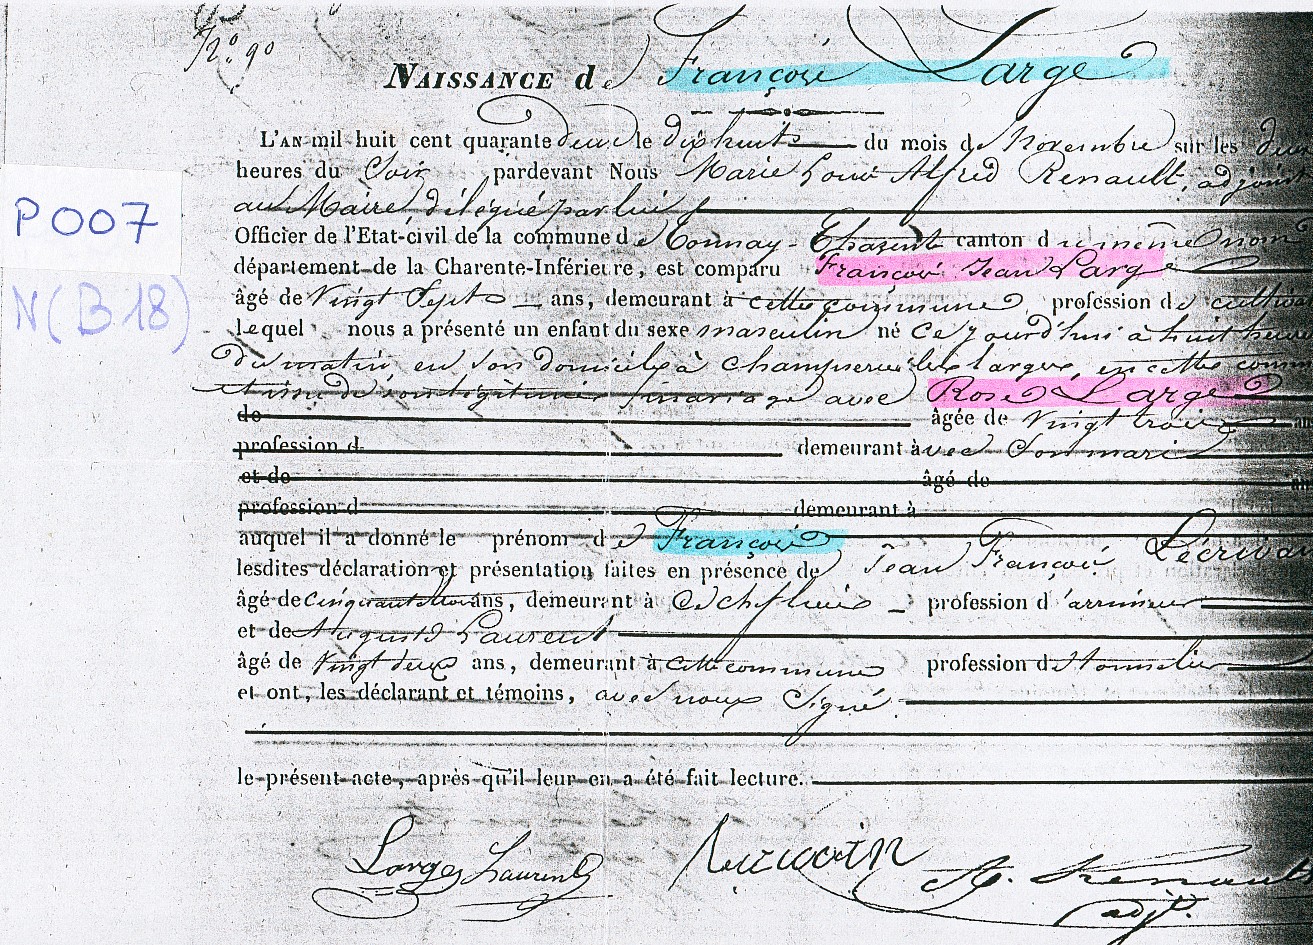 N.° 90
NAISSANCE de François Large
L'AN mil huit cent quarante deux le dix huit du mois de Novembre sur les
heures du Soir pardevant Nous Marie Louis Alfred Renault, adjoint
au Maire délégué par lui
P007
Officier de l'Etat-civil de la commune de Tonnay-Charente canton du même nom
département de la Charente-Inférieure, est comparu François Jean Large
N(B18)
âgé de Vingt Sept ans, demeurant à cette commune profession de
lequel nous a présenté un enfant du sexe masculin né Ce jourd'hui à huit heures
du matin en son domicile à les larges, en cette
mariage avec Rose Large
de âgée de Vingt trois
profession d demeurant avec Son mari
et de âgé de
profession d demeurant à
auquel il a donné le prénom de François
lesdites déclaration et présentation faites en présence de Jean François
âgé de ans, demeurant à profession d'arrimeur
et de Auguste Laurent
âgé de Vingt deux ans, demeurant à cette commune profession de tonnelier
et ont, les déclarant et témoins, avec nous Signé
le présent acte, après qu'il leur en a été fait lecture.
Large Laurent A. Renault
adjt.